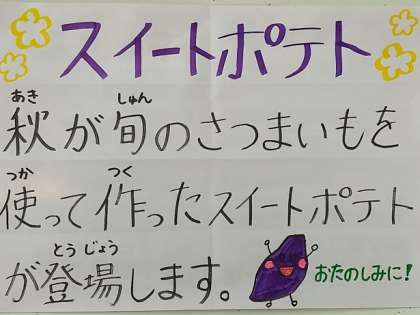 スイートポテト
あき しゅん
秋が旬のさつまいもを
つか つく
使って作ったスイートポテト
とうじょう
が登場します。
おたのしみに!